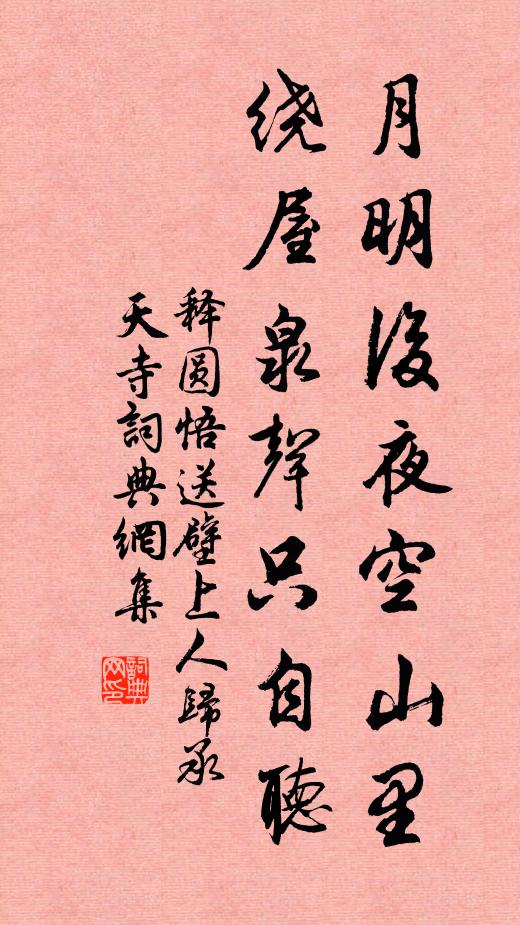 月明後夜空山里
绕屋泉聲只自聽
释圆悟送璧上人歸承
天寺詞典網集
詞典
网印